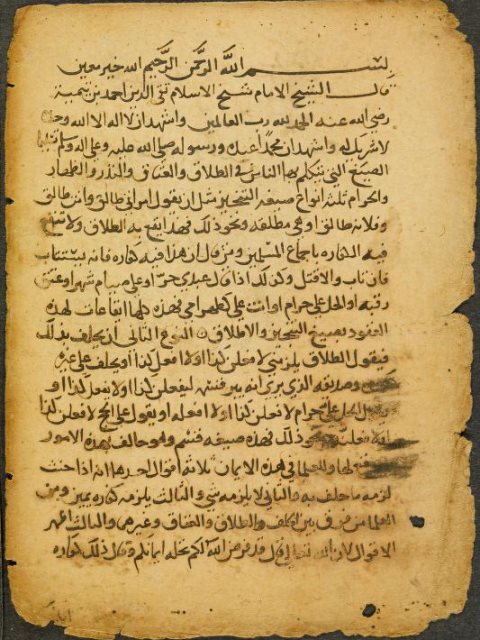 بسم الله الرحمن الرحيم الله خير معين
قال الشيخ الامام شيخ الاسلام تقي الدين احمد بن تيمية
رضي الله عنه الحمد لله رب العالمين واشهد ان لا اله الا الله وحده
لا شريك له واشهد ان محمدا عبده ورسوله صلى الله عليه وعلى اله وسلم تسليما
الصيغ التي يتكلم بها الناس في الطلاق والعتاق والنذر والظهار
والحرام ثلثة انواع صيغه التنجيز مثل ان يقول امراتي طالق وانت طالق
وفلانه طالق او هي مطلقه ونحو ذلك فهذا يقع به الطلاق ولا تنفع
فيه الكفاره باجماع المسلمين ومن قال ان هذا فيه كفاره فانه يستتاب
فان تاب والا قتل وكذلك اذا قال عبدي حر او علي صيام شهر او عتق
رقبه او الحل علي حرام او انت علي كظهر امي فهذه كلها ايقاعات لهذه
العقود بصيغ التنجيز والاطلاق والنوع الثاني ان يحلف بذلك
فيقول الطلاق يلزمني لافعلن كذا او لا افعل كذا او يحلف على غيره
وصديقه الذي يرى انه يبر قسمه ليفعلن كذا او لا يفعل كذا او
يقول الحل علي حرام لافعلن كذا او لا افعله او يقول علي الحج لافعلن كذا
ونحو ذلك فهذه صيغه قسم وهو حالف بهذه الامور
وللعلما في هذه الايمان ثلاثة اقوال احدها انه اذا حنث
لزمه ما حلف به والثاني لا يلزمه شي والثالث يلزمه كفاره يمين ومن
العلما من فرق بين الحلف والطلاق والعتاق وغيرهما والثالث اظهر
الاقوال لان الله تعالى قال قد فرض الله لكم تحله ايمانكم وقال ذلك كفاره